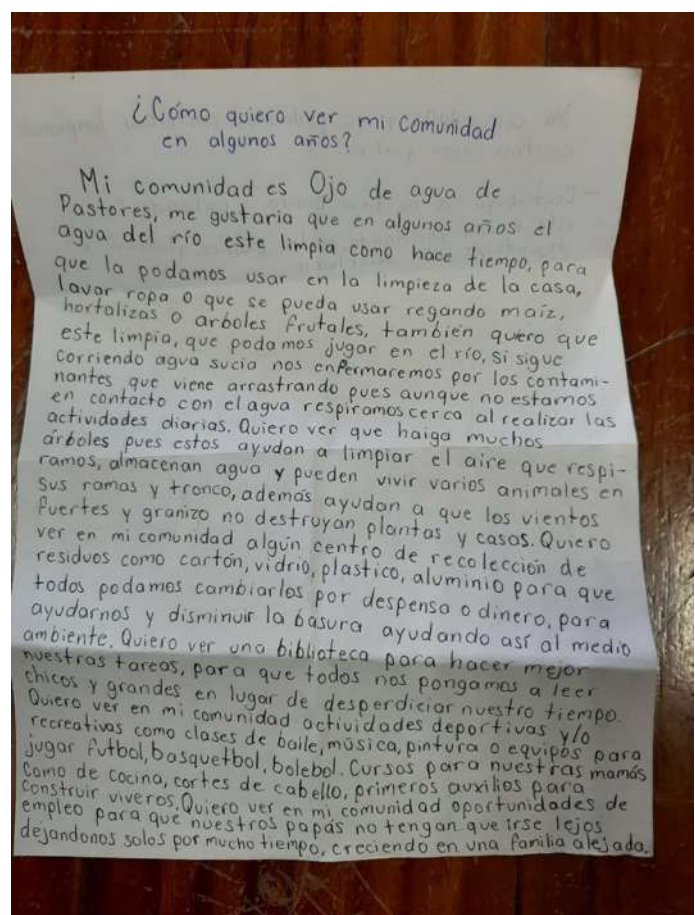 ¿Cómo quiero ver mi comunidad
en algunos años?
Mi comunidad es Ojo de agua de
Pastores, me gustaria que en algunos años el
agua del río este limpia como hace tiempo, para
que la podamos usar en la limpieza de la casa,
lavar ropa o que se pueda usar regando maíz,
hortalizas o arboles frutales, también quiero que
este limpia, que podamos jugar en el río, si sigue
corriendo agua sucia nos enfermaremos por los contami-
nantes que viene arrastrando pues aunque no estamos
en contacto con el agua respiramos cerca al realizar las
actividades diarias. Quiero ver que haiga muchos
árboles pues estos ayudan a limpiar el aire que respi-
ramos, almacenan agua y pueden vivir varios animales en
sus ramas y tronco, además ayudan a que los vientos
fuertes y granizo no destruyan plantas y casas. Quiero
ver en mi comunidad algún centro de recolección de
residuos como cartón, vidrio, plastico, aluminio para que
todos podamos cambiarlos por despensa o dinero, para
ayudarnos y disminuir la basura ayudando así al medio
ambiente. Quiero ver una biblioteca para hacer mejor
nuestras tareas, para que todos nos pongamos a leer
chicos y grandes en lugar de desperdiciar nuestro tiempo.
Quiero ver en mi comunidad actividades deportivas y/o
recreativas como clases de baile, música, pintura o equipos para
jugar futbol, basquetbol, bolebol. Cursos para nuestras mamás
como de cocina, cortes de cabello, primeros auxilios para
construir viveros. Quiero ver en mi comunidad oportunidades de
empleo para que nuestros papás no tengan que irse lejos
dejandonos solos por mucho tiempo, creciendo en una familia alejada.